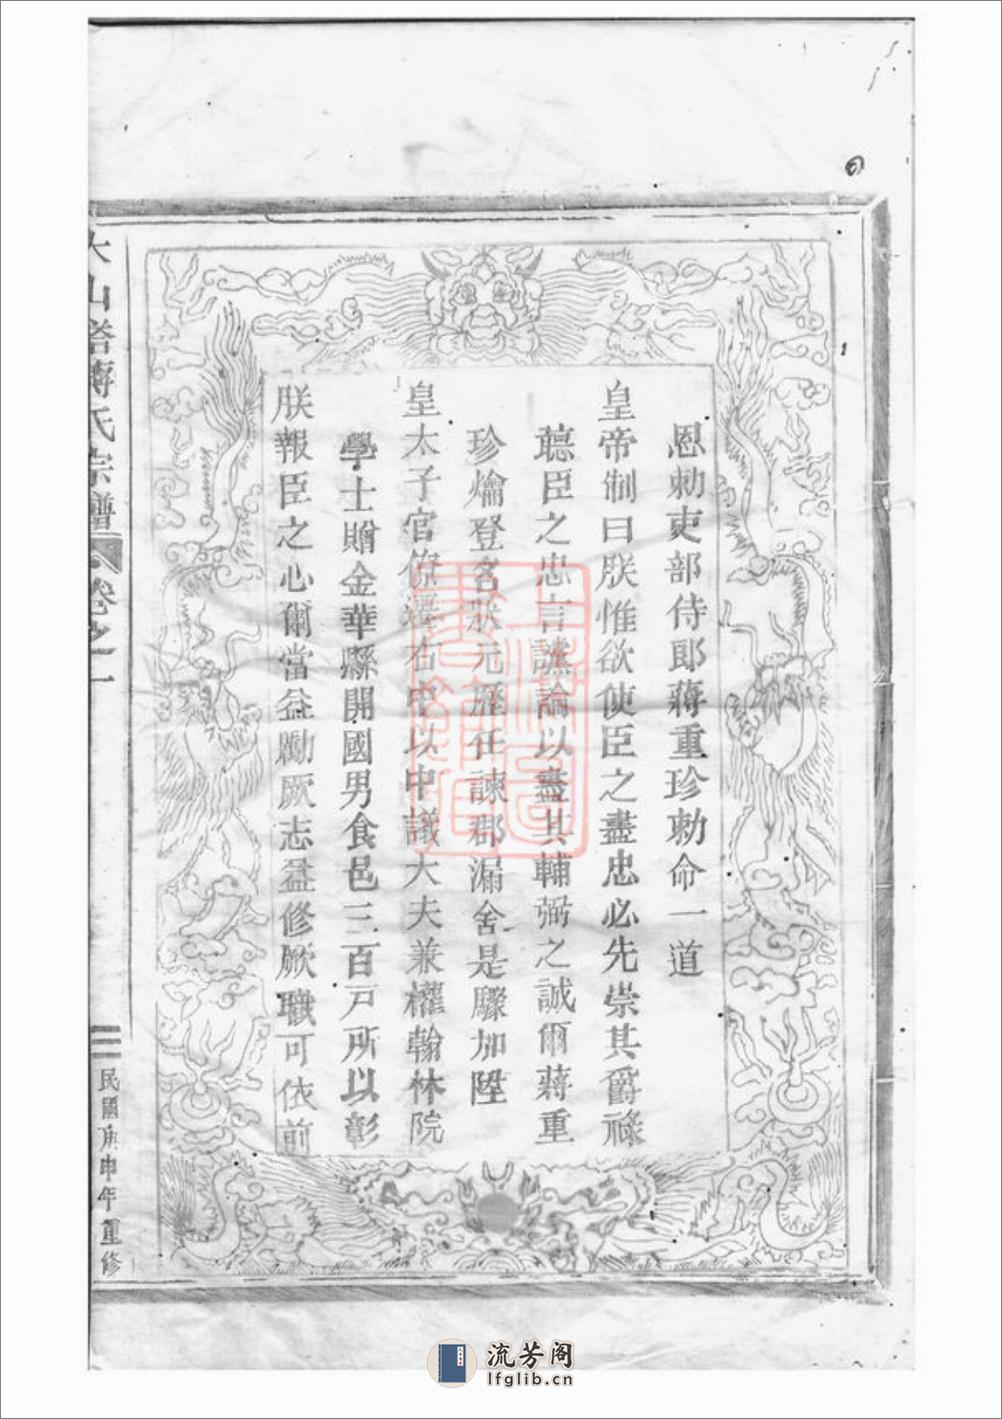 恩勅吏部侍郎蔣重珍勅命一道
皇帝制曰朕惟欲使臣之盡忠必先崇其爵祿
聼臣之忠言讜論以盡其輔弼之誠爾蔣重
珍爚登名狀元歷任諫郡漏舍是驟加陞
皇太子官僚遷右以中議大夫兼權翰林院
學士贈金華縣開國男食邑三百戸所以彰
朕報臣之心爾當益勵厥志益修厥職可依前
大山塔傅氏宗譜
卷之一
三
民國庚申年重修
上海圖書館藏
流芳阁
lfglib.cn